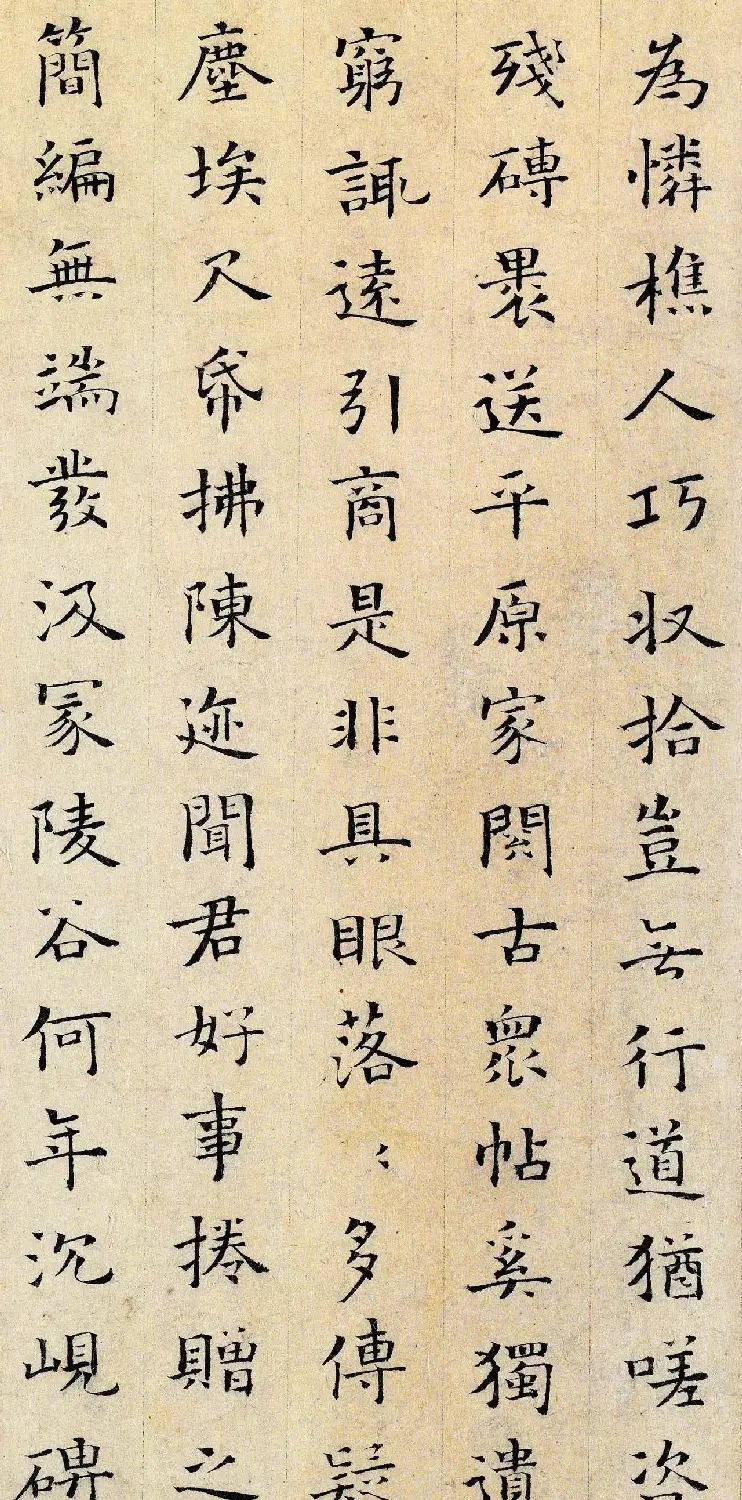 為憐樵人巧収拾豈無行道猶嗟咨
殘磚裹送平原家闕古衆帖奚獨遺
窮諏遠引商是非具眼落〻多傳疑
塵埃尺帋拂陳迹聞君好事捲贈之
簡編無端發汲冢陵谷何年沉峴碑